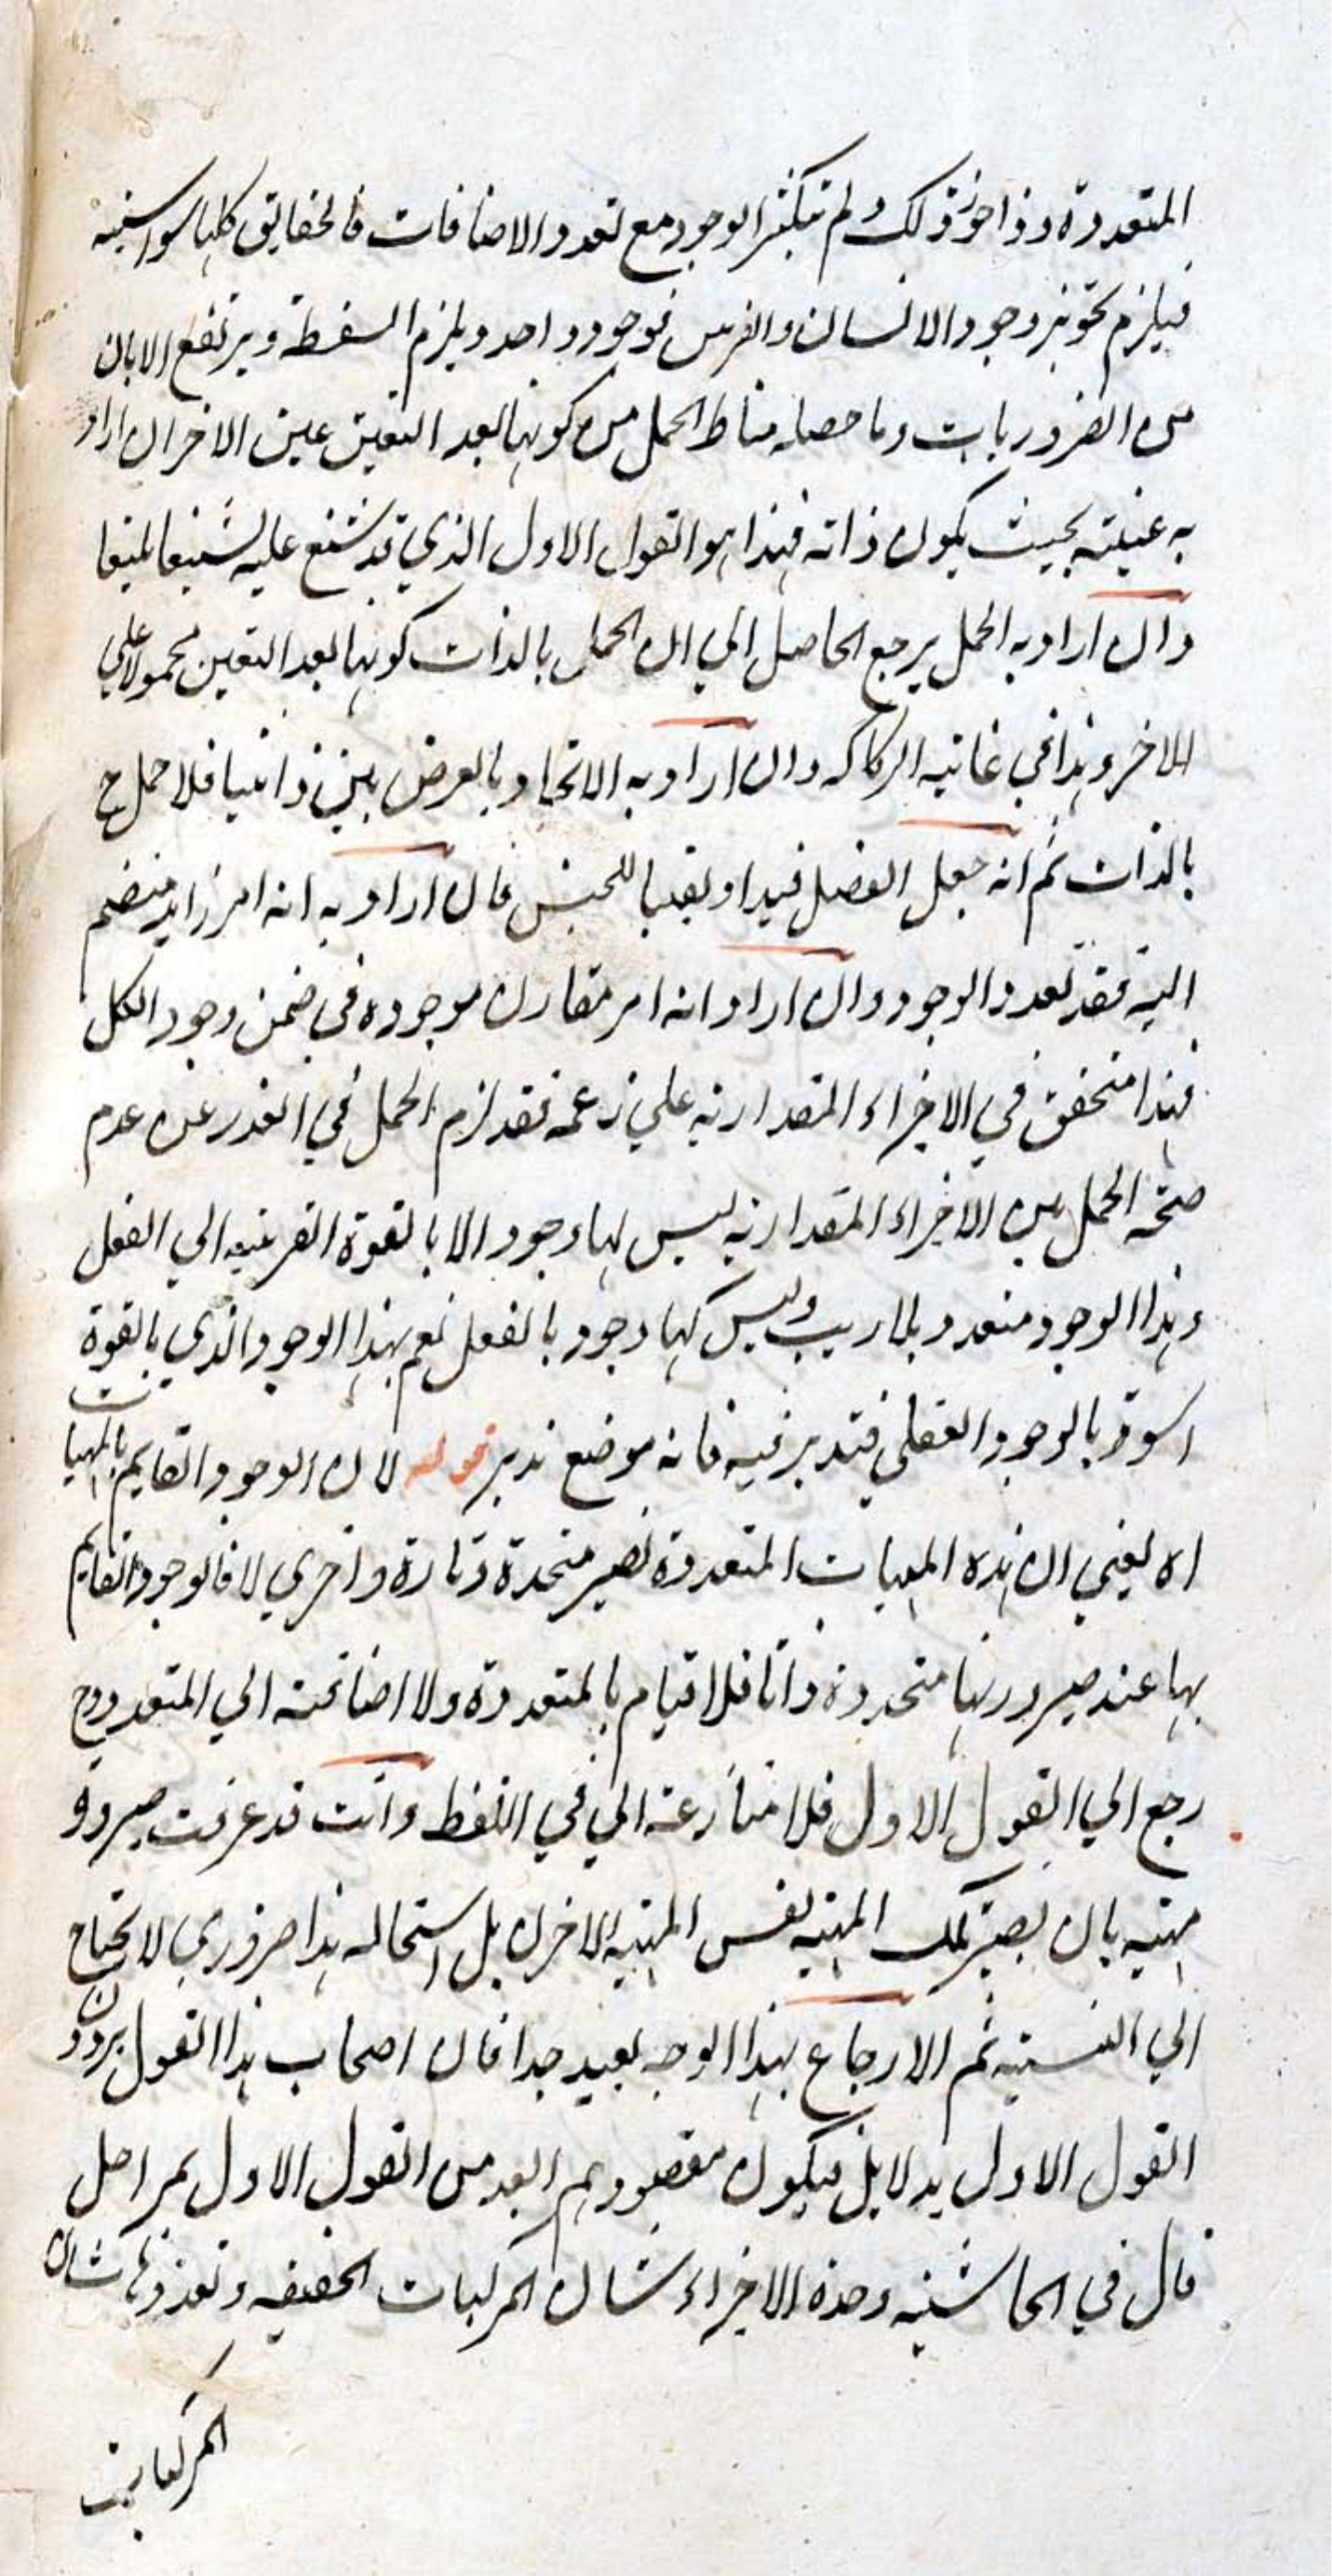 المتعددة واذا جوز ذلك ولم يتكثر الوجود مع تعدد الاضافات فالحقايق كلها سواسية
فيلزم تجويز وجود الانسان والفرس بوجود واحد ويلزم السفسطة ويرتفع الامان
من الضروريات وما حصله مناط الحمل من كونها بعد التعين عين الاخر ان اراد
به عينيته بحيث يكون ذاته فهذا هو القول الاول الذي قد شنع عليه تشنيعا بليغا
وان اراد به الحمل يرجع الحاصل الي ان الحمل بالذات كونها بعد التعين محمولا علي
الاخر وهذا في غاية الركاكه وان اراد به الاتحاد بالعرض بين ذاتيا فلا حمل ح
بالذات ثم انه جعل الفصل قيدا و للجنس فان اراد به انه امر زايد منضم
اليه فقد تعدد الوجود وان اراد انه امر مقارن موجوده في ضمن وجود الكل
فهذا متحقق في الاجزاء المقدارية علي زعمه فقد لزم الحمل في العذر عن عدم
صحة الحمل من الاجزاء المقدارية ليس لها وجود الا بالقوة القريبه الي الفعل
وهذا الوجود متعدد بلا ريب وليس لها وجود بالفعل نعم بهذا الوجود الذي بالقوة
اسوة بالوجود العقلي فتدبر فيه فانه موضع تدبر قوله لان الوجود القايم بالمهيات
اه يعني ان هذه المهيات المتعددة تصير متحدة تارة واخري لا فالوجود القايم
بها عند صيرورتها متحدة ذاتا فلا قيام بالمتعددة ولا اضافته الي المتعدد وح
رجع الي القول الاول فلا منازعة الي في اللفظ وانت قد عرفت صيرورة
مهية بان يصير تلك المهية نفس المهية الاخر ان بل استحاله هذا ضروري لا يحتاج
الي التنبيه ثم الارجاع بهذا الوجه بعيد جدا فان اصحاب هذا القول يردون
القول الاول بدلايل فيكون مقصودهم ابعد من القول الاول بمراحل
قال في الحاشية وحدة الاجزاء شان المركبات الحقيقيه وتعددها شان
المركبات